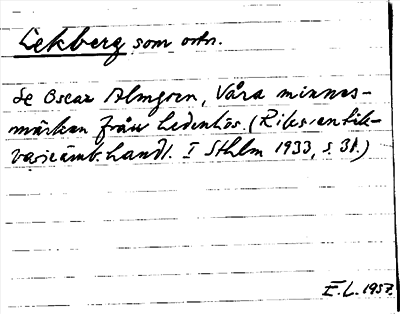 Lekberg som ortn.
Se Oscar Almgren, Våra minnes-
märken från hednahös. (Riksantik-
varieämb. handl. I Sthlm 1933, s. 31.)
E.L. 1957.